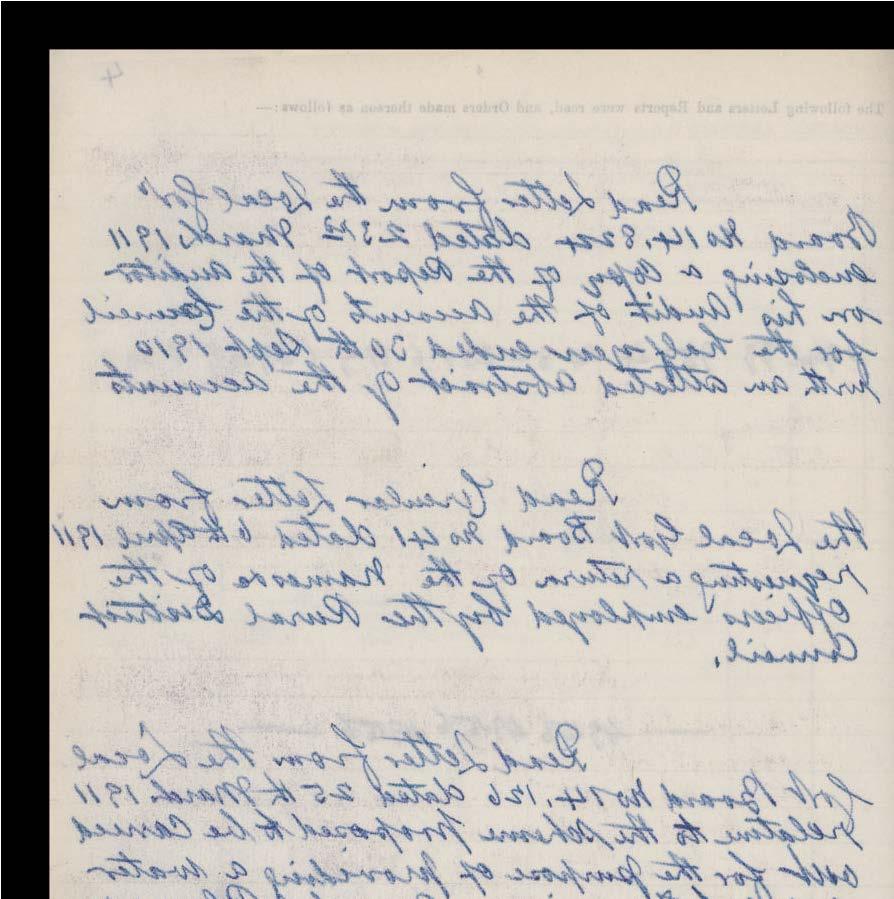 4
The following Letters and Reports were read, and Orders made thereon as follows:—
Read Letter from the Local Govt
Board No 14.824 dated 23rd March 1911
enclosing a copy of the Report of the Auditor
on his Audit of the accounts of the Council
for the half-year ended 30th Sept 1910
with an attested abstract of the accounts
Read Circular Letter from
the Local Govt Board No 41 dated 6th April 1911
requesting a return of the names of the
Officers employed by the Rural District
Council.
Read Letter from the Local
Govt Board No 14,126 dated 25th March 1911
relative to the scheme proposed to be carried
out for the purpose of providing a water